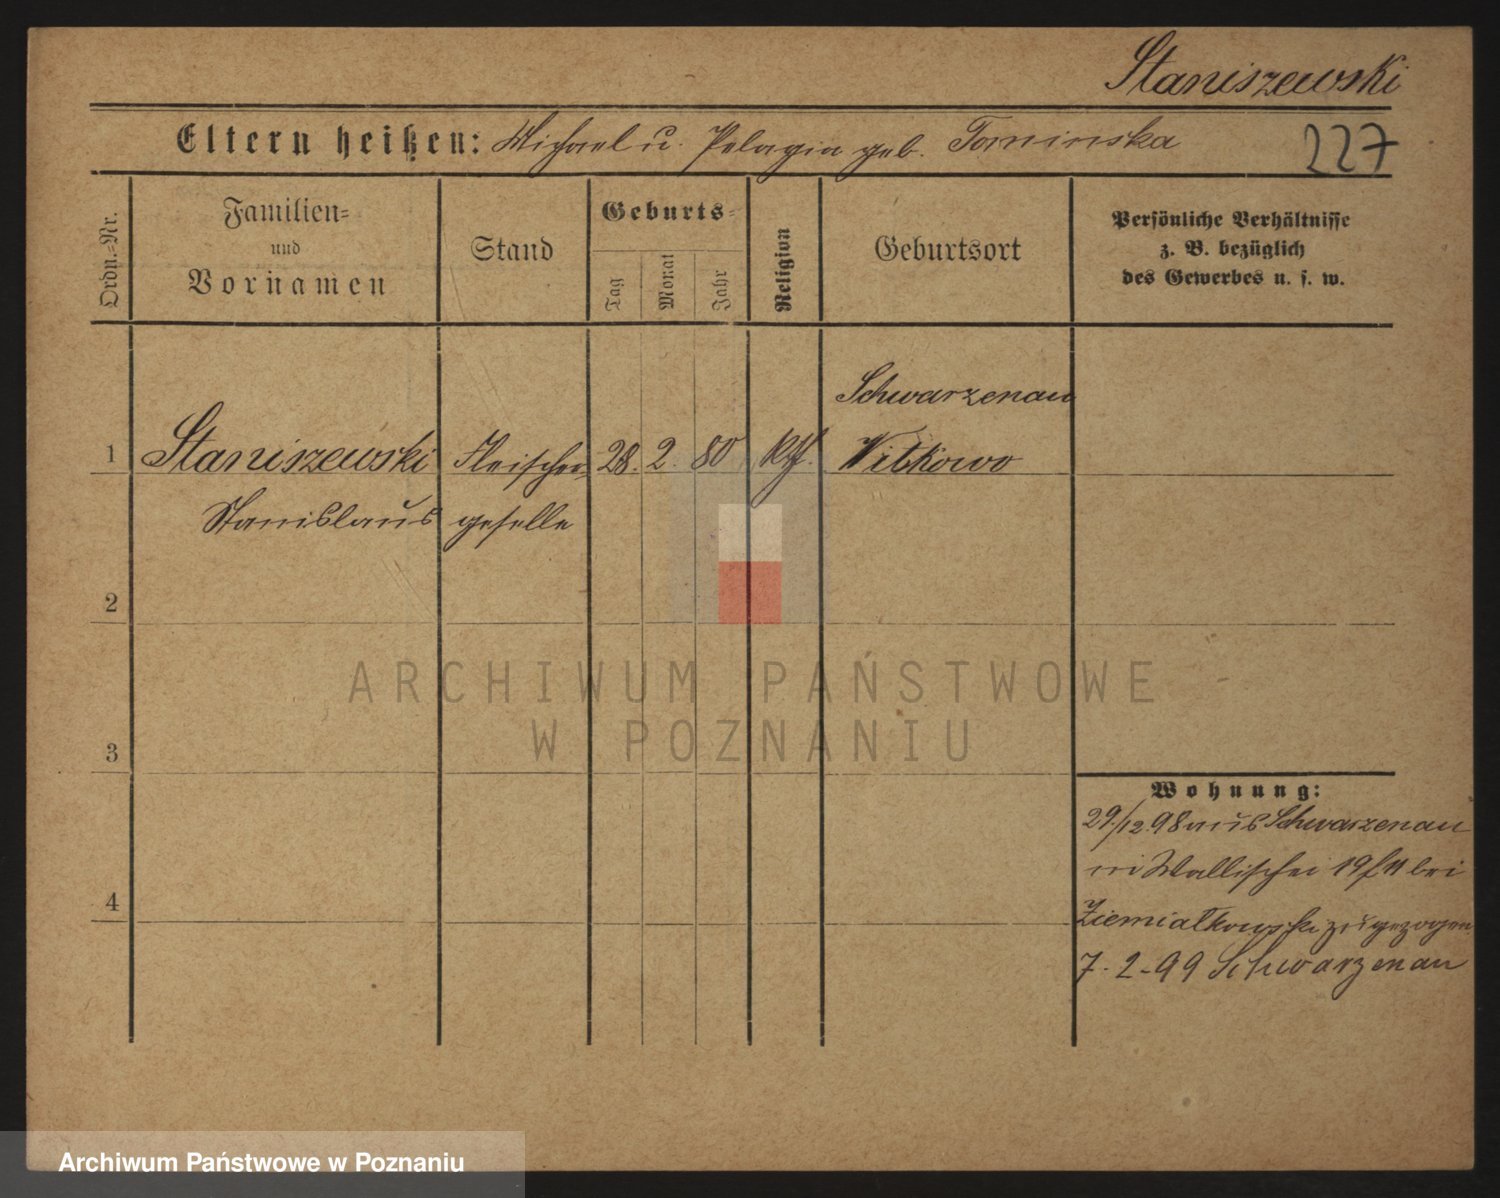 Staniszewski
Eltern heißen: Michael u. Pelagia geb. Tominska
227
Ordn.-Nr.
Familien-
und
Vornamen
Stand
Geburts-
Tag
Monat
Jahr
Religion
Geburtsort
Persönliche Verhältnisse
z. B. bezüglich
des Gewerbes u. s. w.
Schwarzenau
1 Staniszewski Fleischer- 28. 2. 80 kth. Witkowo
Stanislaus geselle
2
ARCHIWUM PAŃSTWOWE
W POZNANIU
3
Wohnung:
29./12.98 aus Schwarzenau
in Wallischei 19/ bei
4
Ziemiatkowski zugezogen
7.-2-99 Schwarzenau
Archiwum Państwowe w Poznaniu